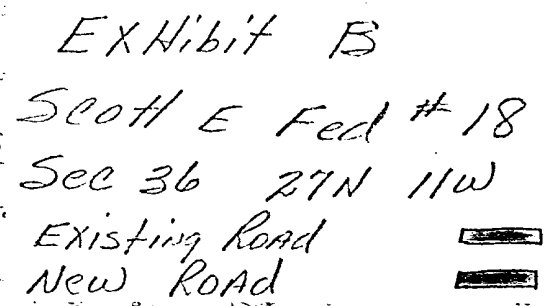 EXHibit B
Scott E Fed #18
Sec 36 27N 11W
Existing Road
New Road